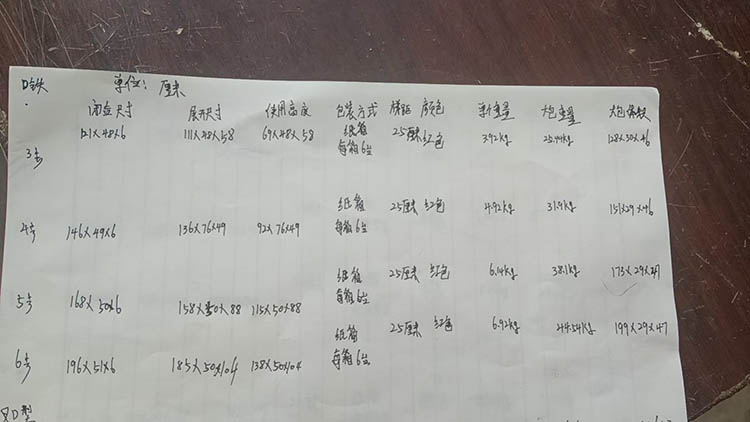 D铁 单位: 厘米
闭盒尺寸 展开尺寸 使用高度 包装方式 梯距 颜色 单重量 大包重量 大包体积
3号 121×48×6 111×48×58 69×48×58 纸箱 每箱6台 25厘米 红色 3.92kg 25.44kg 128×30×46
4号 146×49×6 136×76×49 92×76×49 纸箱 每箱6台 25厘米 红色 4.92kg 31.9kg 151×29×46
5号 168×50×6 158×50×88 115×50×88 纸箱 每箱6台 25厘米 红色 6.14kg 38.1kg 173×29×
6号 196×51×6 185×50×104 138×50×104 纸箱 每箱6台 25厘米 红色 6.92kg 44.54kg 199×29×47
D型